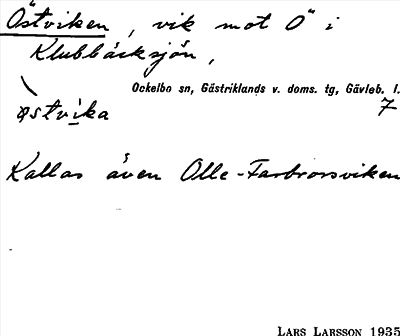 Östviken, vik mot Ö i
Klubbäcksjön,
Ockelbo sn, Gästriklands v. doms. tg, Gävleb. l.
østvika 7
Kallas även Olle-Farbrorsviken
LARS LARSSON 1935